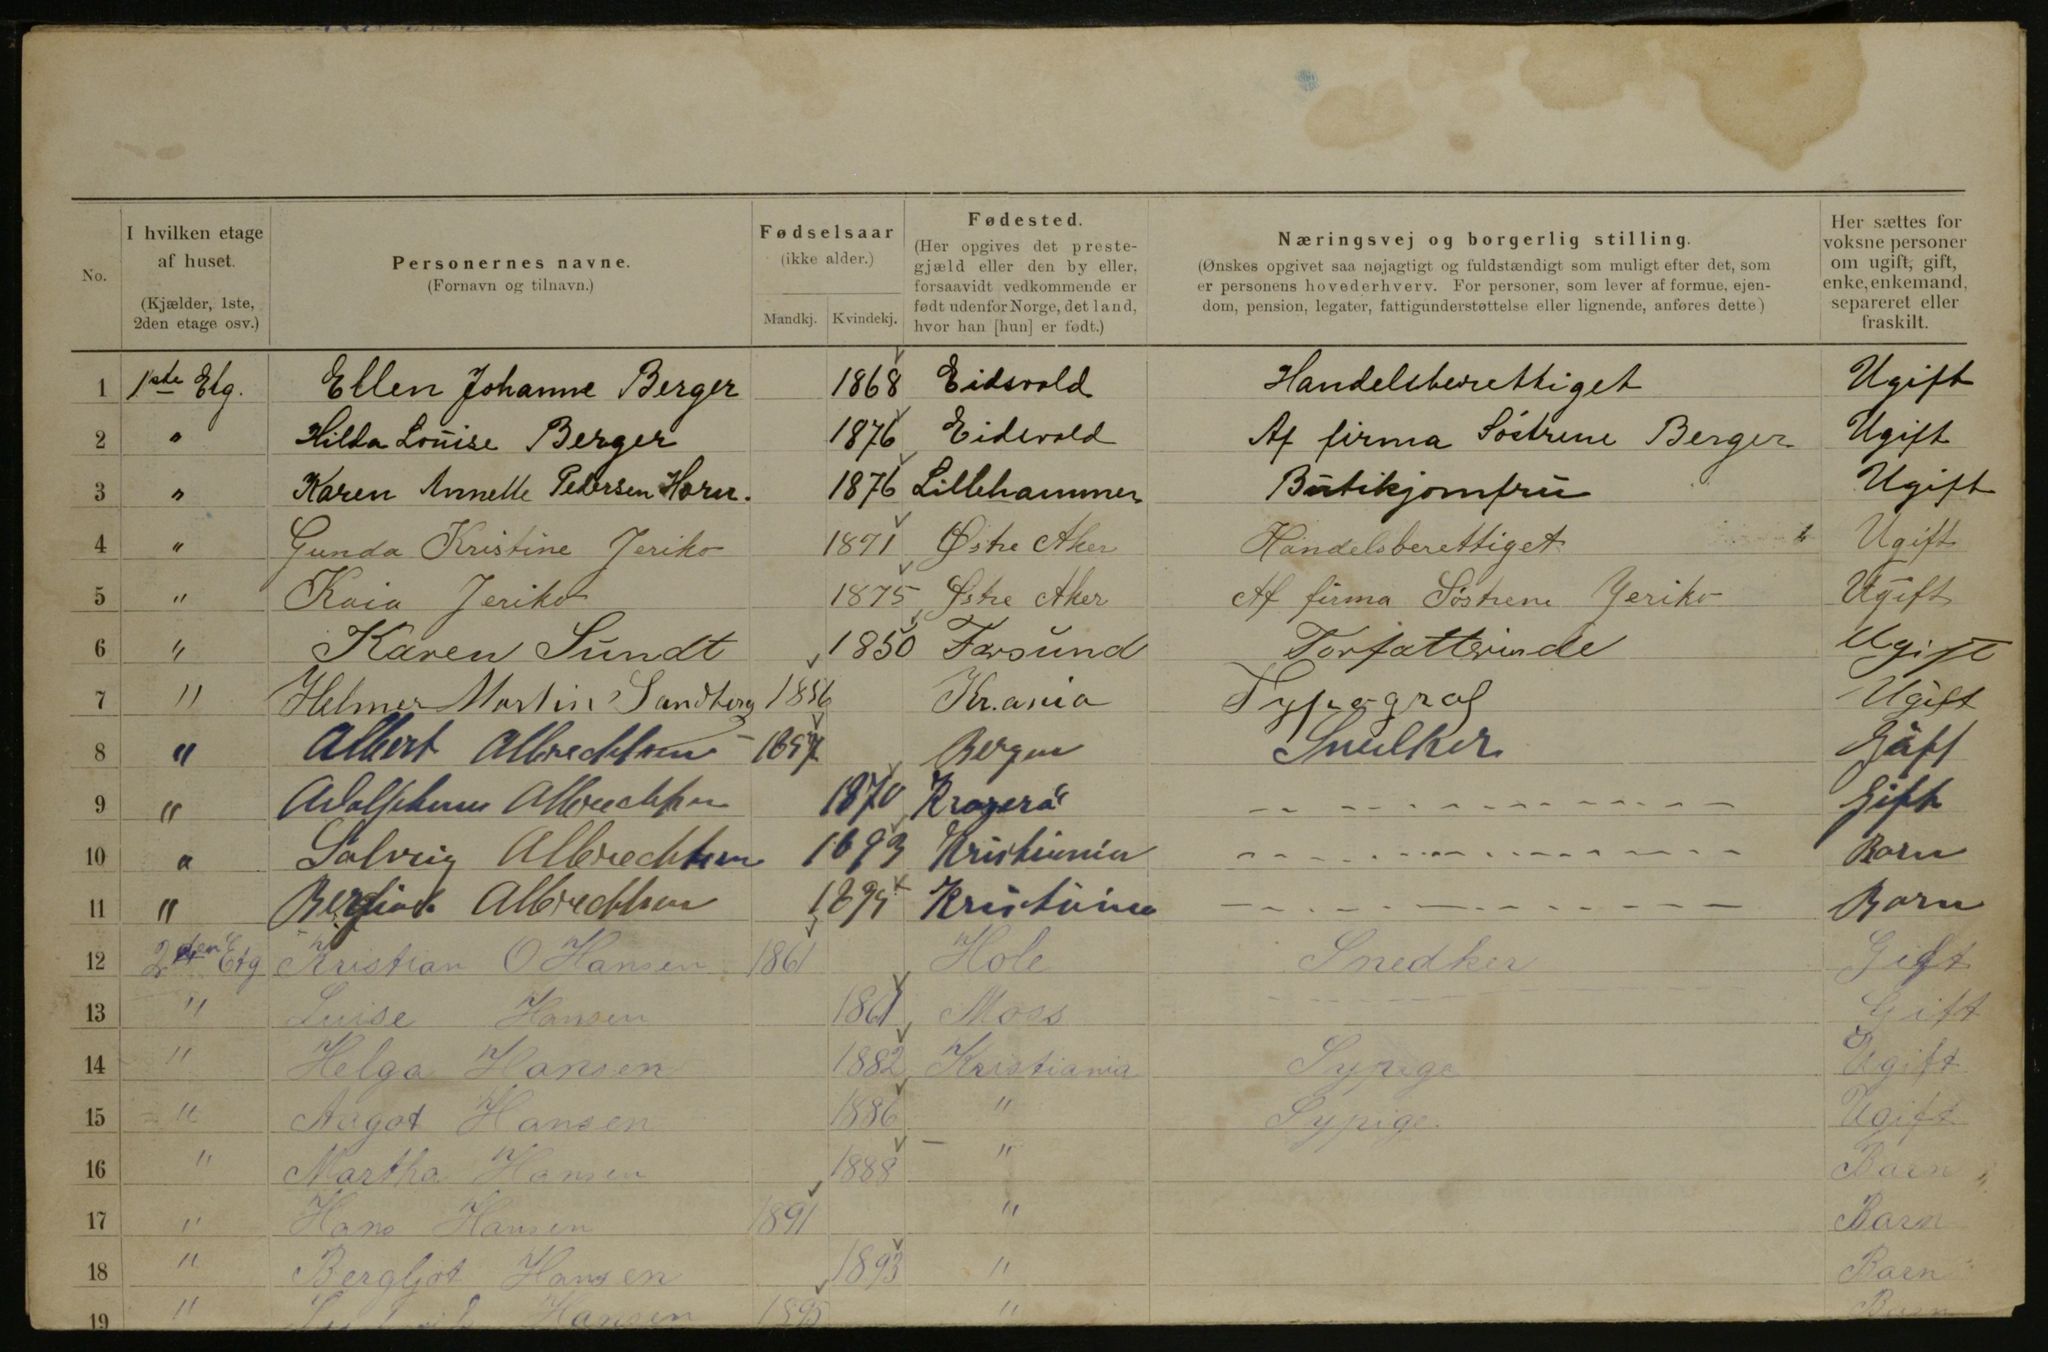 No.
I hvilken etage af huset. (Kjælder, 1ste, 2den etage osv.)
Personernes navne. (Fornavn og tilnavn.)
Fødselsaar (ikke alder.)
Mandkj. Kvindekj.
Fødested. (Her opgives det prestegjæld eller den by eller, forsaavidt vedkommende er født udenfor Norge, det land, hvor han [hun] er født.)
Næringsvej og borgerlig stilling. (Ønskes opgivet saa nøjagtigt og fuldstændigt som muligt efter det, som er personens hovederhverv. For personer, som lever af formue, ejendom, pension, legater, fattigunderstøttelse eller lignende, anføres dette.)
Her sættes for voksne personer om ugift, gift, enke, enkemand, separeret eller fraskilt.
1 1ste Etg. Ellen Johanne Berger 1868 Eidsvold Handelsberettiget Ugift
2 " Hilda Louise Berger 1876 Eidsvold Af firma Söstrene Berger Ugift
3 " Karen Annette Petersen Horn. 1876 Lillehammer Butikjomfru Ugift
4 " Gunda Kristine Jeriko 1871 Østre Aker Handelsberettiget Ugift
5 " Kaia Jeriko 1875 Østre Aker Af firma Söstrene Jeriko Ugift
6 " Karen Sundt 1850 Farsund Forfatterinde Ugift
7 " Helmer Martin Sandberg 1856 Kr.ania Typograf Ugift
8 " Albert Albrechtsen 1857 Bergen Snedker Gift
9 " Albrechtsen 1870 Kragerö Gift
10 " Solveig Albrechtsen 1893 Kristiania Barn
11 " Albrechtsen Kristiania Barn
12 2den Etg Kristian O Hansen 1861 Hole Snedker Gift
13 " Luise Hansen 1861 Moss Gift
14 " Helga Hansen 1882 Kristiania Sypige Ugift
15 " Aagot Hansen 1886 " Sypige Ugift
16 " Martha Hansen 1888 " Barn
17 " Hans Hansen 1891 " Barn
18 " Bergljot Hansen 1893 " Barn
19 " Hansen 1895 " Barn